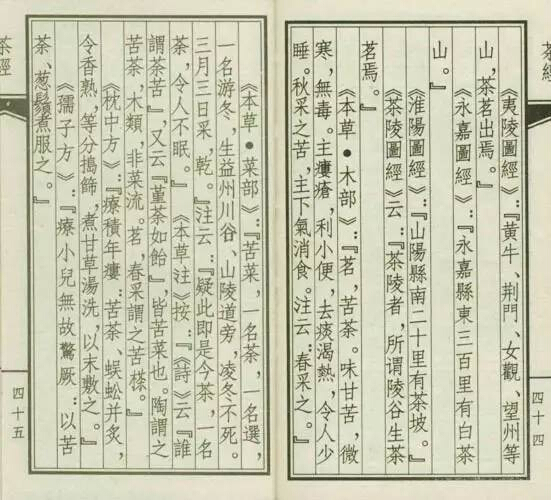 茶經
《夷陵圖經》：『黃牛、荆門、女觀、望州等
山，茶茗出焉。』
《永嘉圖經》：『永嘉縣東三百里有白茶
山。』
《淮陽圖經》：『山陽縣南二十里有茶坡。』
《茶陵圖經》云：『茶陵者，所谓陵谷生茶
茗焉。』
《本草●木部》：『茗，苦茶。味甘苦，微
寒，無毒。主瘻瘡，利小便，去痰渴熱，令人少
睡。秋采之苦，主下氣消食。注云：春采之。』
四十四
《本草●菜部》：『苦菜，一名荼，一名選，
一名游冬，生益州川谷、山陵道旁，凌冬不死。
三月三日采，乾。』注云：『疑此即是今茶，一名
荼，令人不眠。』《本草注》按：『《詩》云『誰
謂荼苦』，又云『堇荼如飴』，皆苦菜也。陶謂之
苦茶，木類，非菜流。茗，春采謂之苦𣘻。』
《枕中方》：『療積年瘻：苦茶、蜈蚣并炙，
令香熟，等分搗篩，煮甘草湯洗，以末敷之。』
《孺子方》：『療小兒無故驚厥：以苦
茶、葱鬚煮服之。』
茶經
四十五